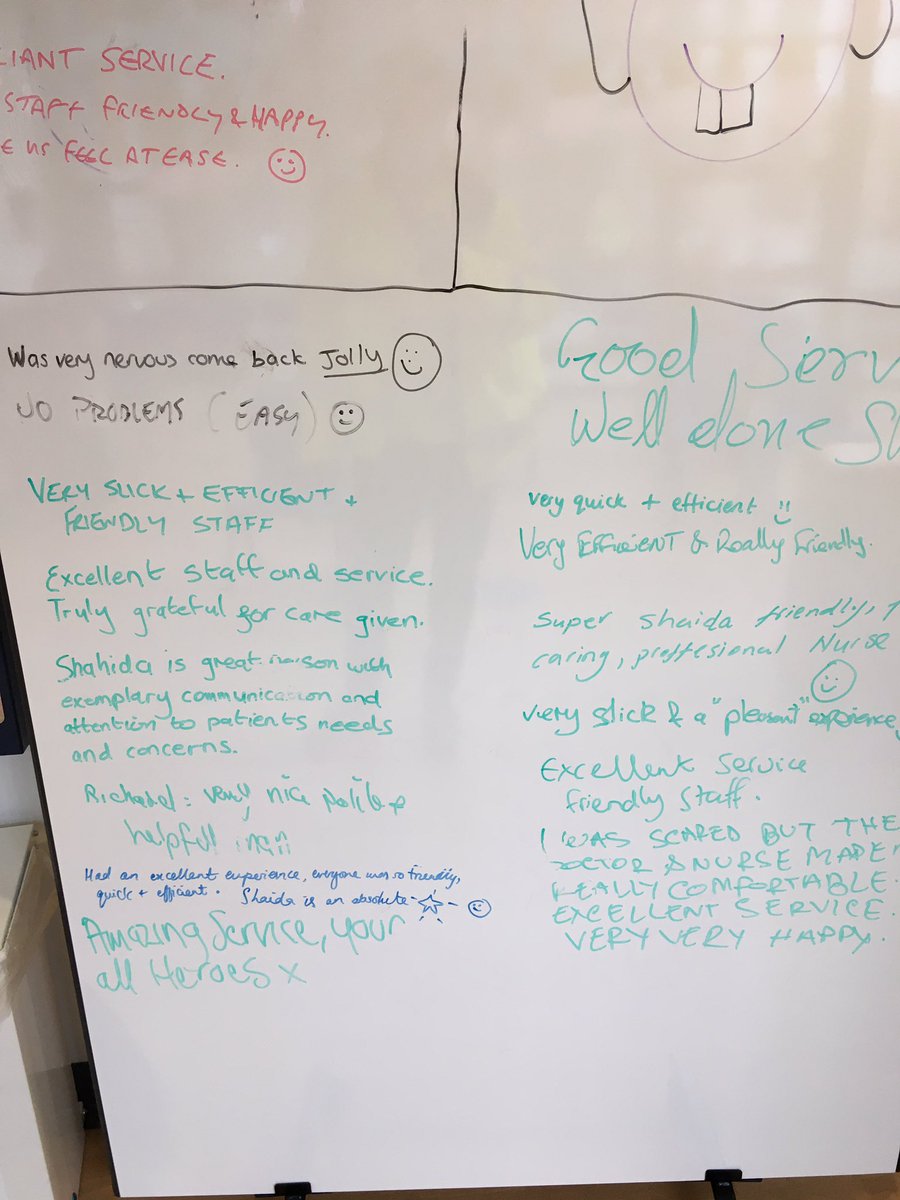 LIANT SERVICE.
STAFF FRIENDLY & HAPPY.
E US FEEL AT EASE.
Was very nervous come back Jolly
NO PROBLEMS (EASY)
VERY SLICK + EFFICIENT +
FRIENDLY STAFF
Excellent staff and service.
Truly grateful for care given.
Shahida is great liaison with
exemplary communication and
attention to patients needs
and concerns.
Richard: very nice polite
helpful man
Had an excellent experience, everyone was so friendly,
quick + efficient. Shaida is an absolute
Amazing Service, your
all Heroes x
Good Serv
Well done S
very quick + efficient
Very EFFicieNT & Really Friendly.
Super Shaida friendly,
caring, proffesional Nurse
very slick & a "pleasent" experience
Excellent Service
friendly staff.
I WAS SCARED BUT THE
DOCTOR & NURSE MADE
REALLY COMFORTABLE.
EXCELLENT SERVICE.
VERY VERY HAPPY.